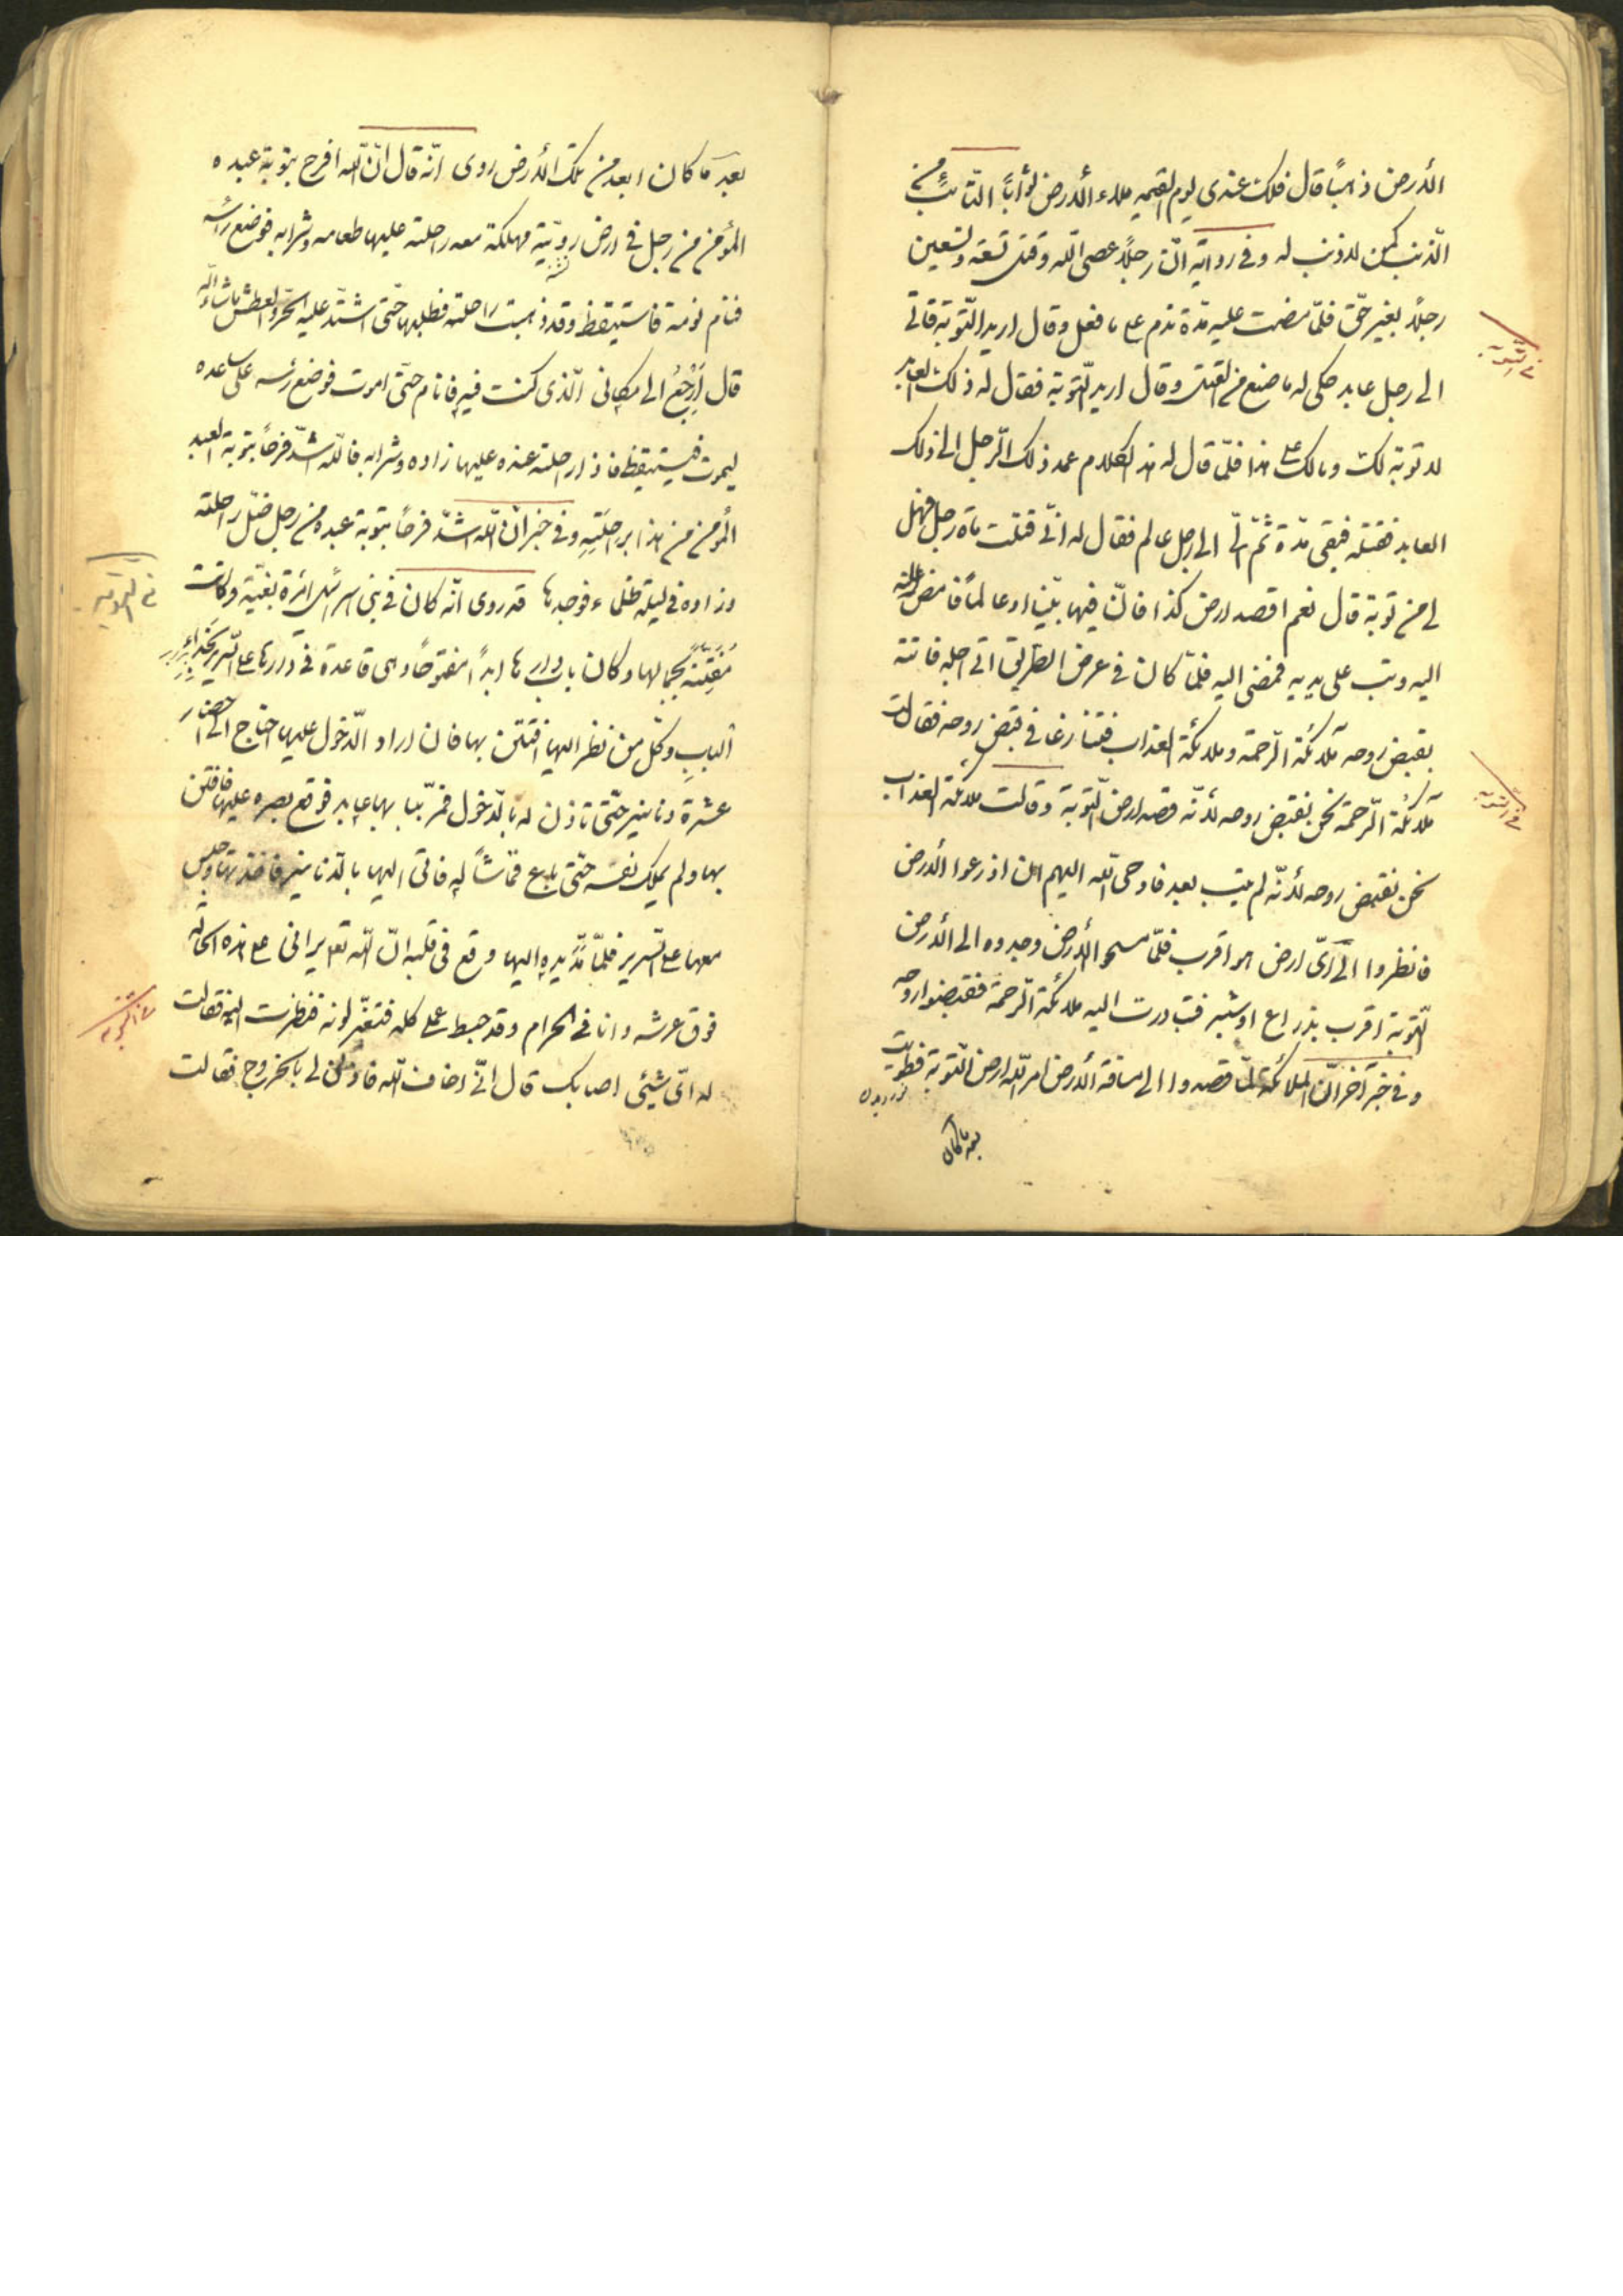 الأرض ذهباً قال فلك عندى يوم القيمه ملاء الأرض ثواباً التّائب من
الذّنب كمن لا ذنب له وفى رواية انّ رجلاً عصى اللّه وقتل تسعة وتسعين
رجلاً بغير حقّ فلمّا مضت عليه مدّة ندم على ما فعل وقال اريد التّوبة فاتى
الى رجل عابد حكى له ما صنع من القتل وقال اريد التّوبة فقال له ذلك العابد
لا توبة لك ومالك على هذا فلمّا قال له هذا الكلام عمد ذلك الرّجل الى ذلك
العابد فقتله فبقى مدّة ثمّ اتى الى رجل عالم فقال له انّى قتلت مأة رجل فهل
لى من توبة قال نعم اقصد ارض كذا فانّ فيها نبيّنا او عالماً فامض
اليه وتب على يديه فمضى اليه فلمّا كان فى عرض الطّريق اتى اجله فاتته
بقبض روحه ملائكة الرّحمة وملائكة العذاب فتنازعا فى قبض روحه فقالت
ملائكة الرّحمة نحن نقبض روحه لأنّه قصد ارض التّوبة وقالت ملائكة العذاب
نحن نقبض روحه لأنّه لم يتب بعد فاوحى اللّه اليهم ان اذرعوا الأرض
فانظروا الى اىّ ارض هو اقرب فلمّا مسحوا الأرض وجدوه الى الأرض
التّوبة اقرب بذراع او شبر فتبادرت اليه ملائكة الرّحمة فقبضوا روحه
وفى خبر آخر انّ الملائكة لمّا قصدوا الى مسافة الأرض امر اللّه ارض التّوبة فطويت
بعد ما كان
فى التّوبه
فى التّوبه
بعد ما كان ابعد من تلك الأرض روى انّه قال انّ اللّه افرح بتوبة عبده
المؤمن من رجل فى ارض رويّية مهلكة معه راحلته عليها طعامه وشرابه فوضع راسه
فنام نومة فاستيقظ وقد ذهبت راحلته فطلبها حتّى اشتدّ عليه الحرّ والعطش ما شاء اللّه
قال اَرْجِعُ الى مكانى الّذى كنت فيه فانام حتّى اموت فوضع رئسه على ساعده
ليموت فيستيقظ فاذا راحلته عنده عليها زاده وشرابه فاللّه اشدّ فرحاً بتوبة العبد
المؤمن من هذا براحلته وفى خبر انّ اللّه اشدّ فرحاً بتوبة عبده من رجل ضلّ راحلته
وزاده فى ليلة ظلماء فوجدها قد روى انّه كان فى بنى اسرائيل امرئة بغيّة وكانت
مُفَتِنَةً بجمالها وكان باب دارها ابداً مفتوحاً وهى قاعدة فى دارها على السّرير بحذاء
الباب وكلّ من نظر اليها افتتن بها فان اراد الدّخول عليها احتاج الى احضار
عشرة دنانير حتّى تاذن له بالدّخول فمرّ ببابها عابد فوقع بصره عليها فافتتن
بها ولم يملك نفسه حتّى باع قماشاً له فاتى اليها بالدّنانير فاخذتها وجلس
معها على السّرير فلمّا مدّ يده اليها وقع فى قلبه انّ اللّه تعه يرانى على هذه الحاله
فوق عرشه وانا فى الحرام وقد حبط عملى كلّه فتغيّر لونه فنظرت اليه فقالت
له اىّ شيئى اصابك قال انّى اخاف اللّه فاذنى لى بالخروج فقالت
فى التّوبه
فى التّوبه